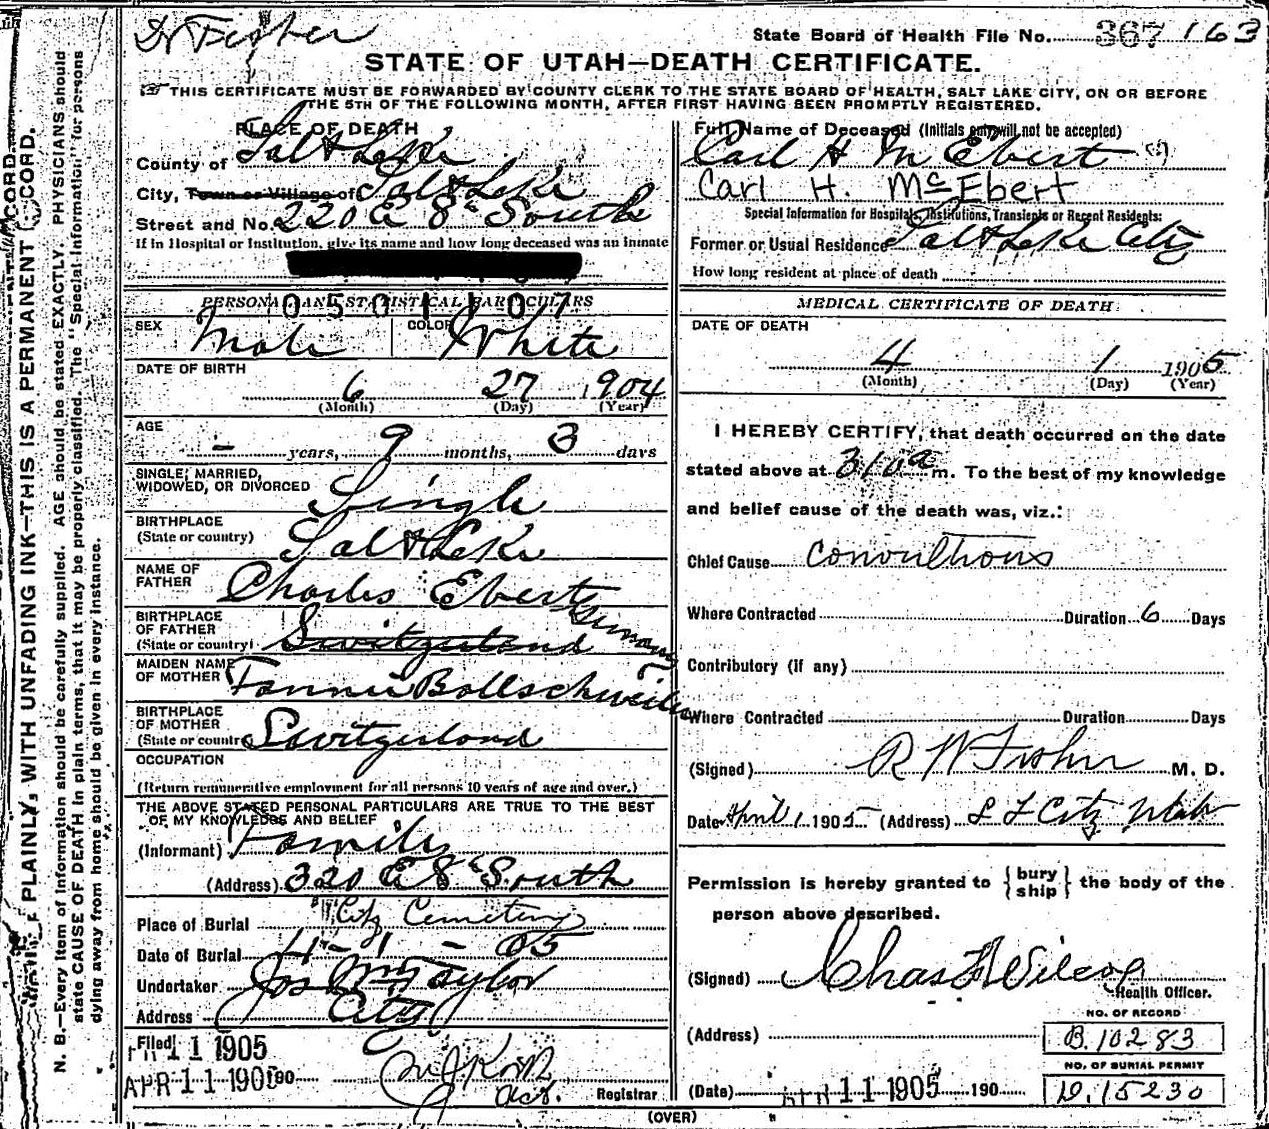 Dr Fisher
State Board of Health File No. 367 163
STATE OF UTAH—DEATH CERTIFICATE.
THIS CERTIFICATE MUST BE FORWARDED BY COUNTY CLERK TO THE STATE BOARD OF HEALTH, SALT LAKE CITY, ON OR BEFORE
THE 5TH OF THE FOLLOWING MONTH, AFTER FIRST HAVING BEEN PROMPTLY REGISTERED.
PLACE OF DEATH
County of Salt Lake
City, Town or Village of Salt Lake
Street and No. 220 E 8th South
If in Hospital or Institution, give its name and how long deceased was an inmate
0501107
PERSONAL AND STATISTICAL PARTICULARS
SEX Male COLOR White
DATE OF BIRTH
6 27 1904
(Month) (Day) (Year)
AGE
- years, 9 months, 3 days
SINGLE, MARRIED,
WIDOWED, OR DIVORCED Single
BIRTHPLACE
(State or country) Salt Lake
NAME OF
FATHER Charles Ebert
BIRTHPLACE
OF FATHER Germany
(State or country) Switzerland
MAIDEN NAME
OF MOTHER Fannie Bollschweiler
BIRTHPLACE
OF MOTHER
(State or country) Switzerland
OCCUPATION
(Return remunerative employment for all persons 10 years of age and over.)
THE ABOVE STATED PERSONAL PARTICULARS ARE TRUE TO THE BEST
OF MY KNOWLEDGE AND BELIEF
(Informant) Family
(Address) 320 E 8th South
Place of Burial City Cemetery
Date of Burial 4 - 1 - 05
Undertaker Jos Wm Taylor
Address City
Filed
11 1905
APR 11 1905 190
Registrar
Full Name of Deceased (Initials only will not be accepted)
Carl H McEbert
Carl H. McEbert
Special Information for Hospitals, Institutions, Transients or Recent Residents:
Former or Usual Residence Salt Lake City
How long resident at place of death
MEDICAL CERTIFICATE OF DEATH
DATE OF DEATH
4 1 1905
(Month) (Day) (Year)
I HEREBY CERTIFY, that death occurred on the date
stated above at 310 a m. To the best of my knowledge
and belief cause of the death was, viz.:
Chief Cause Convulsions
Where Contracted Duration 6 Days
Contributory (if any)
Where Contracted Duration Days
(Signed) R W Fisher M. D.
Date April 1 1905 (Address) S L City Utah
Permission is hereby granted to {bury
ship} the body of the
person above described.
(Signed) Chas F Wilcox
Health Officer.
NO. OF RECORD
(Address) B.10283
NO. OF BURIAL PERMIT
(Date) 11 1905 190 D.15230
(OVER)
PLAINLY, WITH UNFADING INK—THIS IS A PERMANENT RECORD.
N. B.—Every item of information should be carefully supplied. AGE should be stated EXACTLY. PHYSICIANS should
state CAUSE OF DEATH in plain terms, that it may be properly classified. The "Special Information" for persons
dying away from home should be given in every instance.